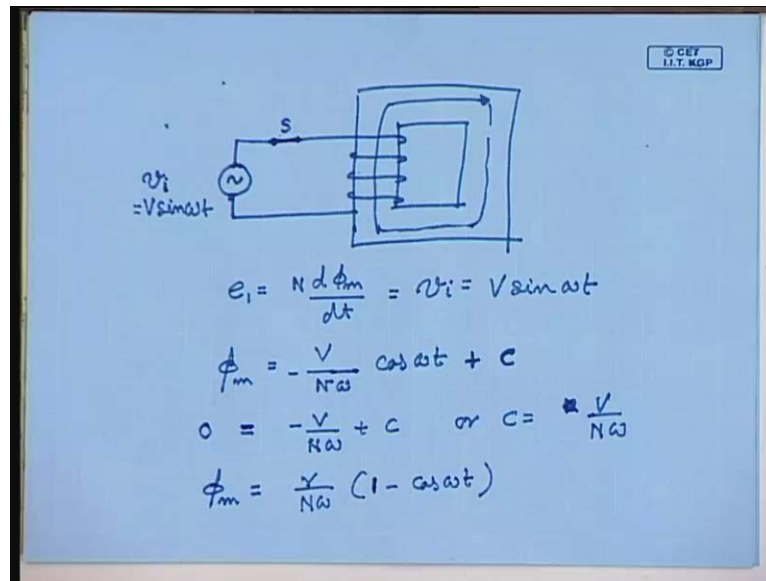 © CET
I.I.T. KGP
S
vi
= V sin ωt
e₁ = N dϕm/dt = vi = V sin ωt
ϕm = - V/Nω cos ωt + C
0 = - V/Nω + C or C = V/Nω
ϕm = V/Nω (1 - cos ωt)